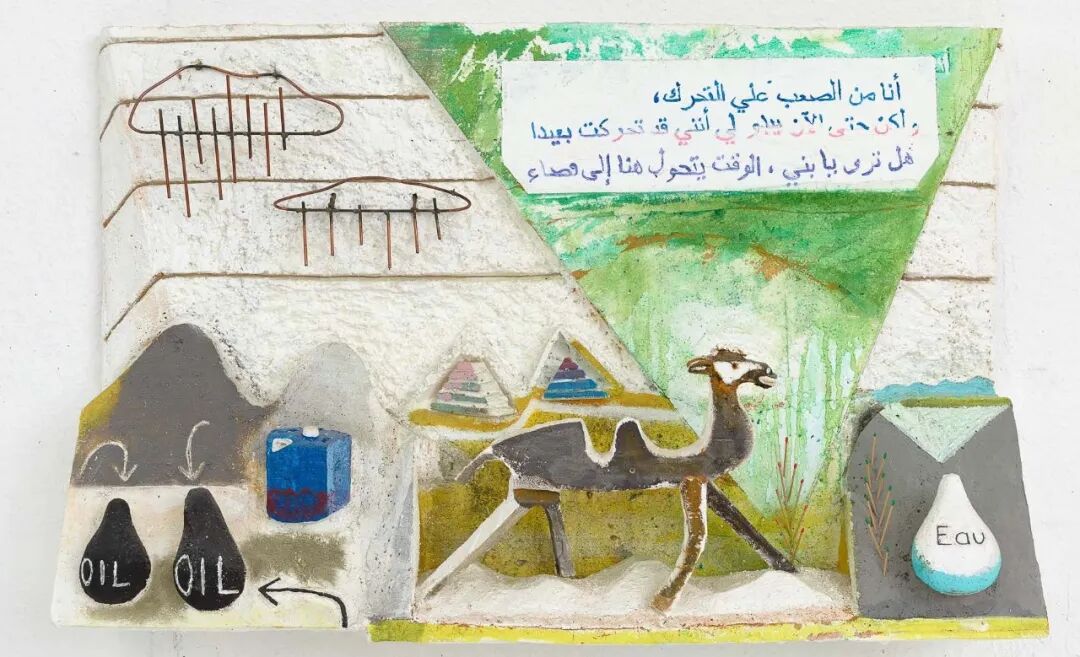 أنا من الصعب علي التحرك،
ولكن حتى الآن يبدو لي أنني قد تحركت بعيدا
هل ترى يا بني ، الوقت يتحول هنا إلى فصاء
Eau
OIL
OIL